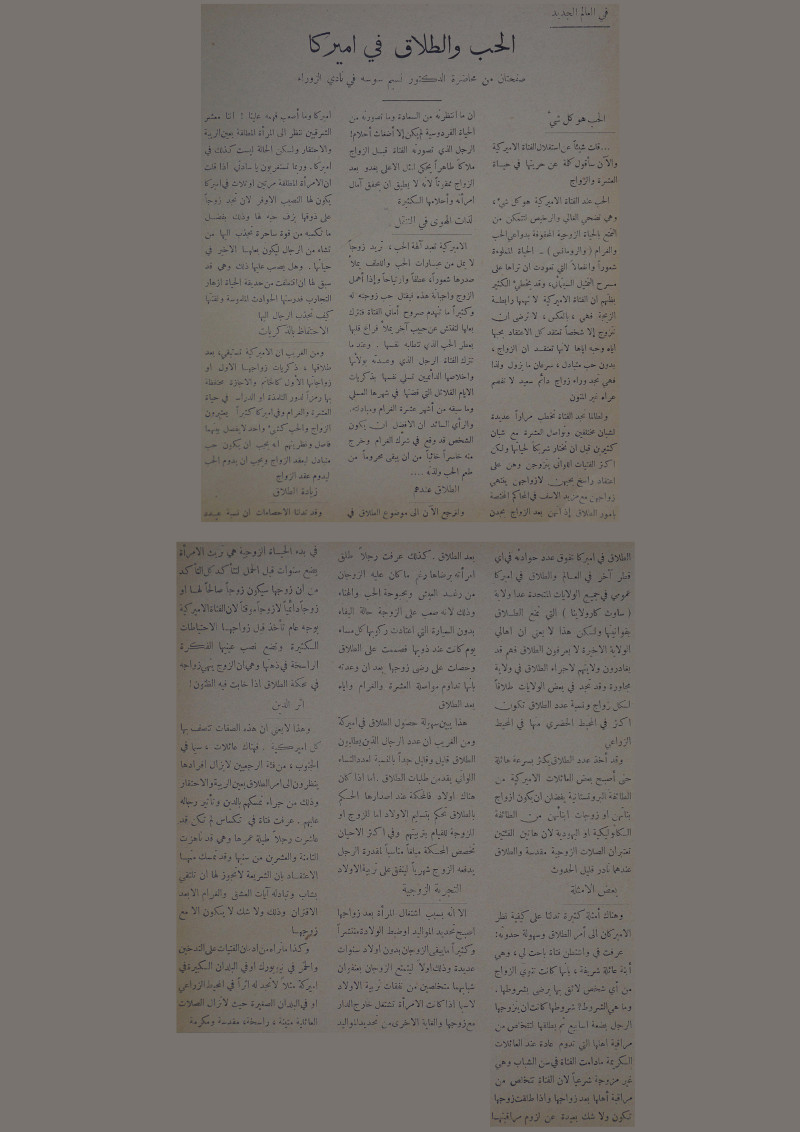 في العالم الجديد
الحب والطلاق في اميركا
صفحتان من محاضرة الدكتور نسيم سوسه في نادي الزوراء
الحب هو كل شيء
...قلت شيئاً عن استقلال الفتاة الاميركية
والآن سأقول كلمة عن حريتها في حياة
العشرة والزواج
الحب عند الفتاة الاميركية هو كل شيء ،
وهي تضحي الغالي والرخيص لتتمكن من
التمتع بالحياة الزوجية المحفوفة بدواعي الحب
والغرام ( والرومانس ) .. الحياة المملوءة
شعوراً التي تعودت ان تراها على
مسرح التمثيل السينمائي، وقد يخطيء الكثير
بظنهم ان الفتاة الاميركية لا تهمها رابطة
الزيجة فهي ، بالعكس ، لا ترضى ان
تتزوج إلا شخصاً تعتقد كل الاعتقاد بحبها
اياه وحبه اياها لانها تعتقد ان الزواج ،
بدون حب متبادل ، سرعان ما يزول ولذا
فهي تجد وراء زواج دائم سعيد لا تفصم
عراه غير المنون
ولطالما نجد الفتاة تخطب مراراً عديدة
لشبان مختلفين وتواصل العشرة مع شبان
كثيرين قبل ان تختار شريكا لحياتها ولكن
اكثر الفتيات اللواتي يتزوجن وهن على
اعتقاد راسخ بحبهن لازواجهن يظهر
زواجهن مع مزيد الاسف في المحاكم المختصة
بامور الطلاق إذ انهن بعد الزواج يجدن
ان ما انتظرنه من السعادة وما تصورنه من
الحياة الفردوسية لم يكن إلا أضغاث أحلام!
الرجل الذي تصورته الفتاة قبل الزواج
ملاكاً طاهراً يحكي المثل الاعلى يغدو بعد
الزواج لانه لا يطيق ان يحقق آمال
امرأته وأحلامها الكثيرة
لذات الهوى في التنقل
الاميركية تعبد آلهة الحب ، تريد زوجاً
لا يمل من عبارات الحب والتلطف يملأ
صدرها شعوراً، عطفاً وارتياحاً وإذا أهمل
الزوج واجباته هذه فيقتل حب زوجته له
وكثيراً ما تنهدم صروح أماني الفتاة فتترك
بعلها لتفتش عن حبيب آخر يملأ فراغ قلبها
بعطر الحب الذي تتطلبه نفسها . وعند ما
تترك الفتاة الرجل الذي وعدته بولائها
واخلاصها الدائمين تسلي نفسها بذكريات
الايام القلائل التي قضتها في شهرها العسلي
وما سبقه من أشهر عشرة الغرام ومبادئه
والرأي السائد ان الافضل ان يكون
الشخص قد وقع في شرك الغرام وخرج
منه خاسراً خائباً من ان يبقى محروماً من
طعم الحب ولذته ....
الطلاق عندهم
ولنرجع الآن الى موضوع الطلاق في
اميركا وما أصعب فهمه علينا ! اننا معشر
الشرقيين ننظر الى المرأة المطلقة بعين الريبة
والاحتقار ولكن الحالة ليست كذلك في
اميركا . وربما تستغربون يا سادتي اذا قلت
ان الامرأة المطلقة مرتين او ثلاث في اميركا
يكون لها النصيب الاوفر لان تجد زوجاً
على ذوقها يزف حبه لها وذلك بفضل
ما تكسبه من قوة ساحرة تجذب اليها من
تشاء من الرجال ليكون بعلها الاخير في
حياتها . وهل يصعب عليها ذلك وهي قد
سبق لها ان اقتطفت من حديقة الحياة ازهار
التجارب فدرستها الحوادث الملموسة ولقنتها
كيف تجذب الرجال اليها
الاحتفاظ بالذكريات
ومن الغريب ان الاميركية تستبقي، بعد
طلاقها ، ذكريات زواجها الاول او
زواجاتها الأول كالخاتم والاجازة محتفظة
بها رمزاً لدور التلمذة او الدراسة في حياة
العشرة والغرام وفي اميركا كثيراً يعتبرون
الزواج والحب كشيء واحد لا يفصل بينهما
فاصل ونظريتهم انه يجب ان يكون حب
متبادل ليعقد الزواج ويجب ان يدوم الحب
ليدوم عقد الزواج
زيادة الطلاق
وقد تدلنا الاحصاءات ان نسبة عدد
الطلاق في اميركا تفوق عدد حوادثه في اي
قطر آخر في العالم والطلاق في اميركا
عمومي في جميع الولايات المتحدة عدا ولاية
( ساوث كارولاينا ) التي تمنع الطلاق
بقوانينها ولكن هذا لا يعني ان اهالي
الولاية الاخيرة لا يعرفون الطلاق فهم قد
يغادرون ولايتهم لاجراء الطلاق في ولاية
مجاورة وقد تجد في بعض الولايات طلاقاً
لكل زواج ونسبة عدد الطلاق تكون
اكثر في المحيط الحضري منها في المحيط
الزراعي
وقد أخذ عدد الطلاق يكثر بسرعة هائلة
حتى أصبح بعض العائلات الاميركية من
الطائفة البروتستانية يفضلن ان يكون ازواج
بناتهن او زوجات ابنائهن من الطائفة
الكاثوليكية او اليهودية لان هاتين الفئتين
تعتبران الصلات الزوجية مقدسة والطلاق
عندهما نادر قليل الحدوث
بعض الامثلة
وهناك أمثلة كثيرة تدلنا على كيفية نظر
الاميركان الى أمر الطلاق وسهولة حدوثه:
عرفت في واشنطن فتاة باحت لي ، وهي
ابنة عائلة شريفة ، بانها كانت تنوي الزواج
من أي شخص لائق بها يرضى بشروطها .
وما هي الشروط؟ شروطها كانت ان يتزوجها
الرجل بضعة اسابيع ثم يطلقها لتتخلص من
مراقبة اهلها التي تدوم عادة عند العائلات
الكريمة مادامت الفتاة في سن الشباب وهي
غير متزوجة شرعياً لان الفتاة تتخلص من
مراقبة أهلها بعد زواجها واذا طلقت زوجها
تكون ولا شك بعيدة عن لزوم مراقبتها
بعد الطلاق . كذلك عرفت رجلاً طلق
امرأته برضاها رغم ما كان عليه الزوجان
من رغد العيش وبحبوحة الحب والهناء
وذلك لانه صعب على الزوجة حالة البقاء
بدون السيارة التي اعتادت ركوبها كل مساء
يوم كانت عند ذويها فصممت على الطلاق
وحصلت على رضى زوجها بعد ان وعدته
بانها تداوم مواصلة العشرة والغرام واياه
بعد الطلاق
هذا يبين سهولة حصول الطلاق في اميركا
ومن الغريب ان عدد الرجال الذين يطلبون
الطلاق قليل وقليل جداً بالنسبة لعدد النساء
اللواتي يقدمن طلبات الطلاق . اما اذا كان
هناك اولاد فالمحكمة عند اصدارها الحكم
بالطلاق تحكم بتسليم الاولاد اما للزوج او
الزوجة للقيام بتربيتهم وفي اكثر الاحيان
تخصص المحكمة مبلغاً مناسباً لمقدرة الرجل
يدفعه الزوج شهرياً لينفق على تربية الاولاد
التجربة الزوجية
الا انه بسبب اشتغال المرأة بعد زواجها
اصبح تحديد المواليد او ضبط الولادة منتشراً
وكثيراً ما يبقى الزوجان بدون اولاد سنوات
عديدة وذلك اولاً ليتمتع الزوجان بعنفوان
شبابهما متخلصين من نفقات تربية الاولاد
لاسيما اذا كانت الامرأة تشتغل خارج الدار
مع زوجها والغاية الاخرى من تحديد المواليد
في بدء الحياة الزوجية هي تريث الامرأة
بضع سنوات قبل الحمل لتتأكد كل التأكد
من ان زوجها سيكون زوجاً صالحاً لها او
زوجاً دائمياً لا زوجاً موقتاً لان الفتاة الاميركية
بوجه عام تأخذ قبل زواجها الاحتياطات
الكثيرة وتضع نصب عينيها الفكرة
الراسخة في ذهنها وهي ان الزوج ينهي زواجه
في محكمة الطلاق اذا خابت فيه الظنون !
اثر الدين
وهذا لا يعني ان هذه الصفات تتصف بها
كل اميركية . فهناك عائلات ، سيما في
الجنوب ، من فئة الرجعيين لا يزال افرادها
ينظرون الى امر الطلاق بعين الريبة والاحتقار
وذلك من جراء تمسكهم بالدين وتأثير رجاله
عليهم . عرفت فتاة في تكساس لم تكن قد
عاشرت رجلاً طيلة عمرها وهي قد ناهزت
الثامنة والعشرين من سنيها وقد تمسك منها
الاعتقاد بان الشريعة لا تجوز لها ان تلتقي
بشاب وتبادله آيات العشق والغرام الا بعد
الاقتران وذلك ولا شك لا يتكون الا مع
زوجها
وكذا ما نراه من ادمان الفتيات على التدخين
والخمر في نيويورك او في البلدان الكبيرة في
اميركة مثلاً لا تجد له اثراً في المحيط الزراعي
او في البلدان الصغيرة حيث لا تزال الصلات
العائلية متينة ، راسخة، مقدسة ومكرمة